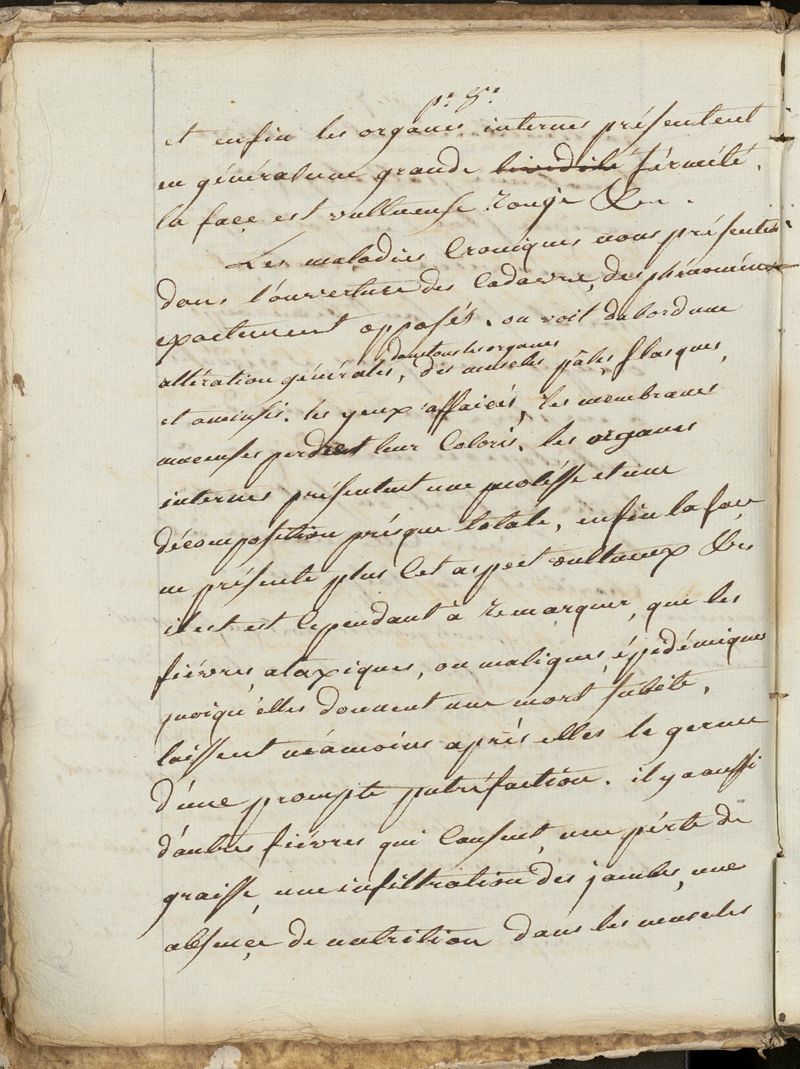 p.e 8.e
et enfin les organes internes présentent
en général une grande lividité férmété.
la façe est vultueuse rouge &c.
Les maladies Croniques nous présentent
dans l'ouverture des Cadavre, des phénomène
exactement opposés. on voit dabord une
dans tous les organes
altération générales, des muscles pâles, flasques,
et amincis. les yeux affaicés, les membranes
muceuses perdent leur Coloris. les organes
internes présentent une molésse et une
décomposition présque totale, enfin la face
ne présente plus Cet aspect vultueux &c
il est est Cependant à remarquer, que les
fiévres ataxiques, ou maligues, épidémiques
quoiqu'elles donnent une mort subite,
laissent néamoins aprés elles le germe
d'une prompte putréfaction. il y a aussi
d'autres fiévres qui Causent, une pérte de
graisse, une infiltration des jambes, une
absençe de nutrition dans les muscles